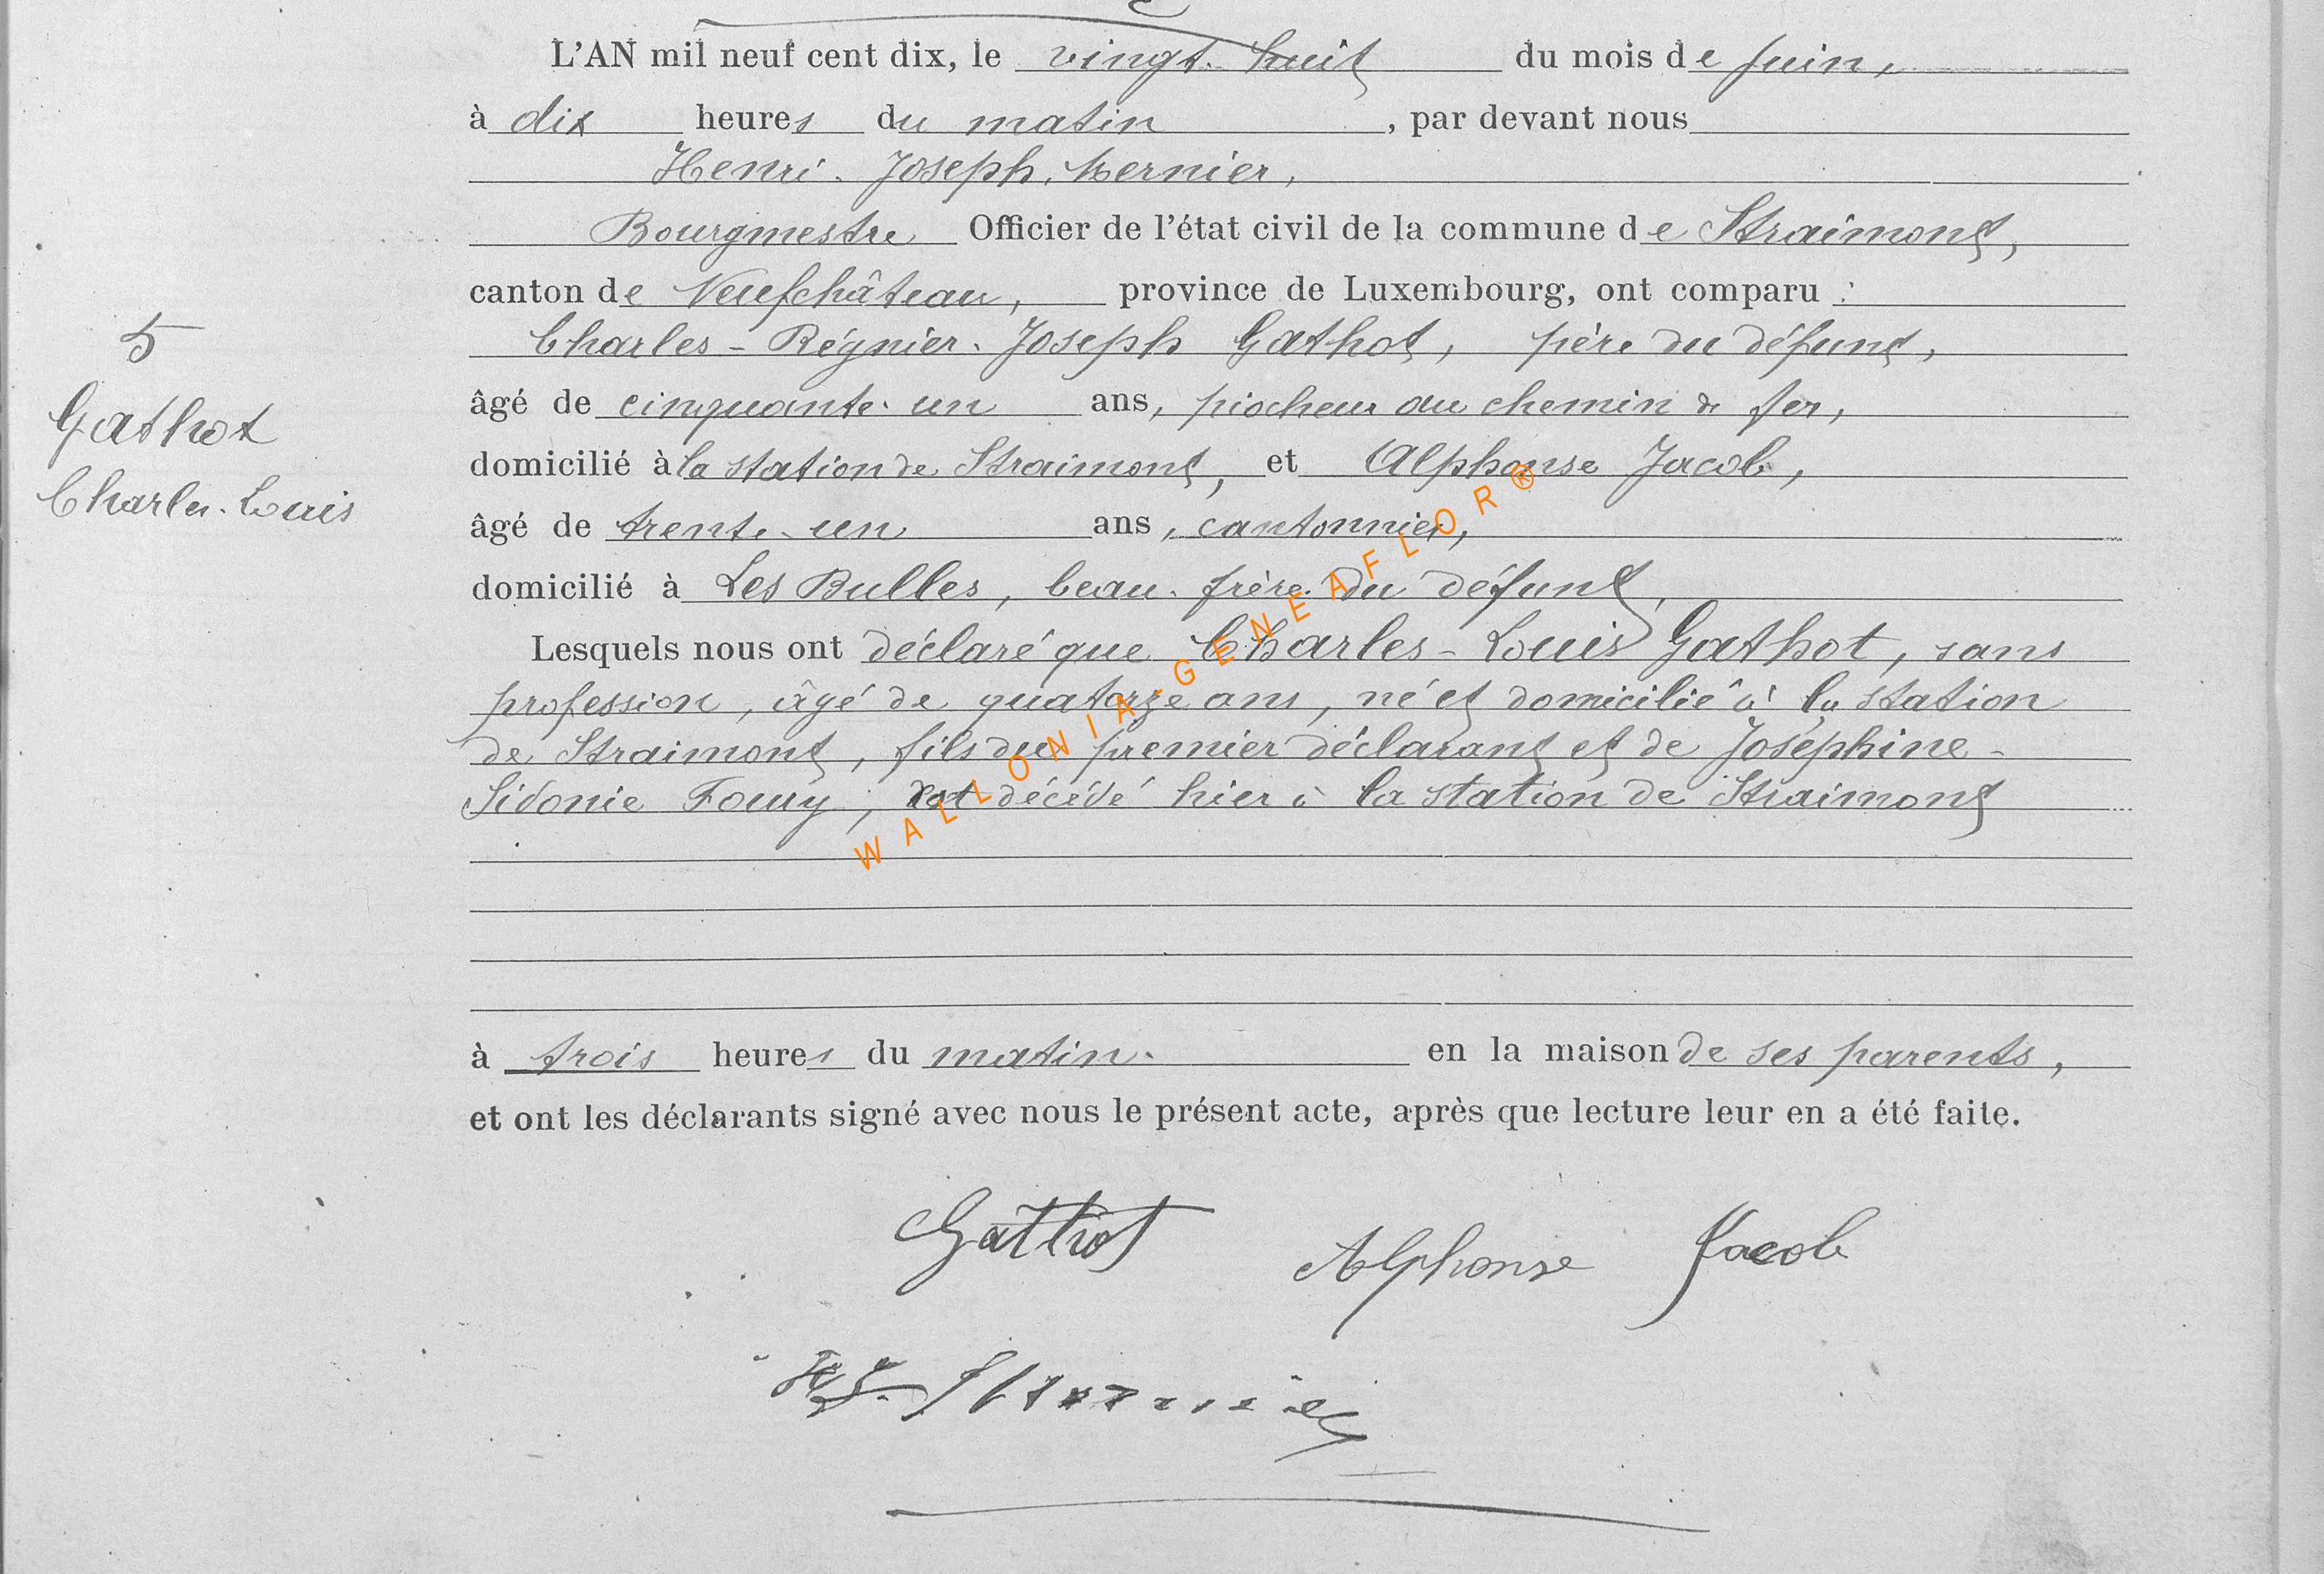 L'AN mil neuf cent dix, le vingt-huit du mois de Juin,
à dix heures du matin, par devant nous
Henri-Joseph Mernier,
Bourgmestre Officier de l'état civil de la commune de Straimont,
canton de Neufchâteau, province de Luxembourg, ont comparu :
Charles-Régnier-Joseph Gathot, père du défunt,
5
âgé de cinquante-un ans, piocheur au chemin de fer,
Gathot
domicilié à la station de Straimont, et Alphonse Jacob,
Charles-Louis
âgé de trente-un ans, cantonnier,
domicilié à Les Bulles, beau-frère du défunt,
Lesquels nous ont déclaré que Charles-Louis Gathot, sans
profession, âgé de quatorze ans, né et domicilié à la station
de Straimont, fils du premier déclarant et de Joséphine-
Sidonie Foury, est décédé hier à la station de Straimont
à trois heures du matin. en la maison de ses parents,
et ont les déclarants signé avec nous le présent acte, après que lecture leur en a été faite.
Gathot Alphonse Jacob
HJ. Mernier
WALLONIA-GENEAFLOR®